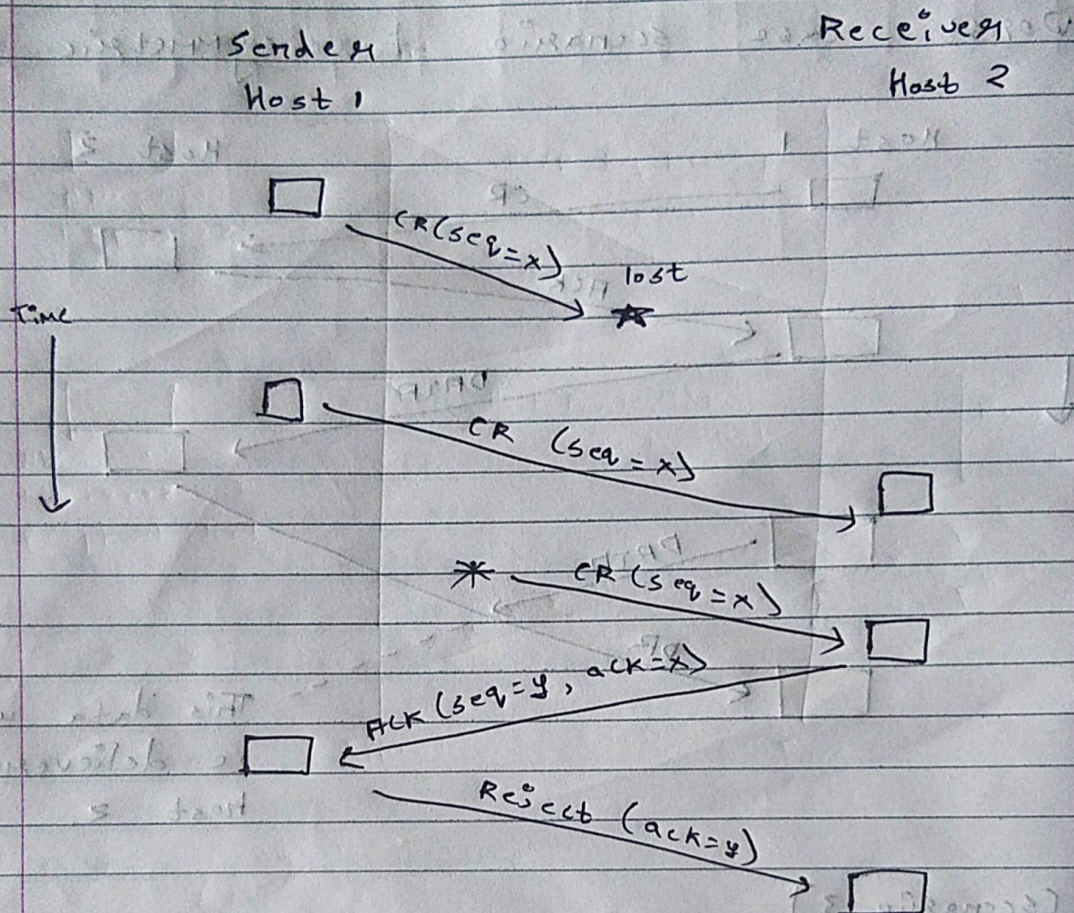 Sender
Receiver
Host 1
Host 2
CR (seq=x)
lost
Time
CR (seq=x)
CR (seq=x)
ACK (seq=y, ack=x)
Reject (ack=y)